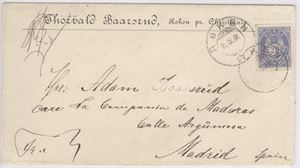 Thorvald Baarsrud, Røken pr. Christiania
RØKEN
Hr. Adam Baarsrud
Care La Compania de Maderas
Calle Argumosa
Madrid